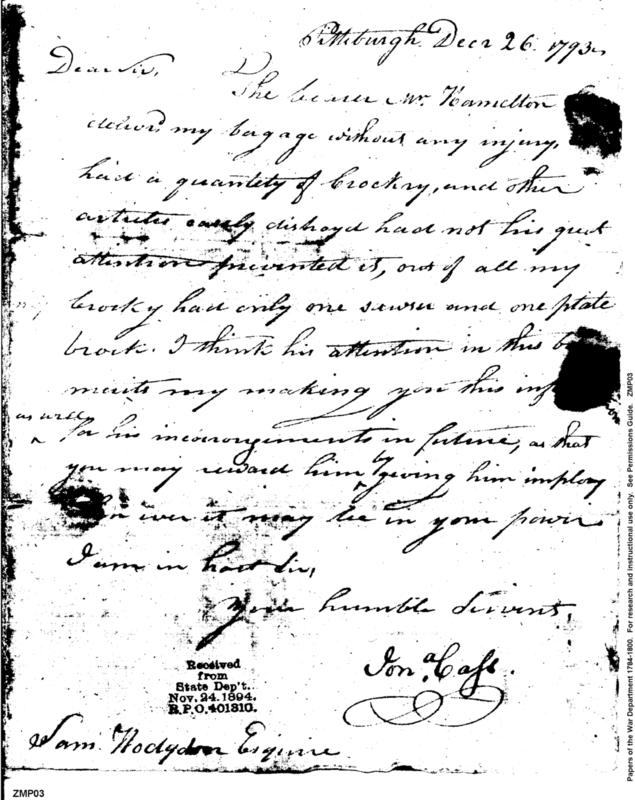 Pittsburgh Decr 26. 1793.
Dear Sir,
The bearer Mr. Hamelton
deliverd my bagage without any injury,
had a quantity of Crockry, and other
articles easely distroyd had not his great
attention privented it, out of all my
Crocky had only one sawser and one plate
brock. I think his attention in this
merits my making you this
as well
for his incorragements in future, as that
you may reward him by giving him imploy
ever it may be in your power
I am in hast Sir,
Your humble Servent,
Jona. Cass.
Received
from
State Dep't..
Nov. 24. 1894.
R.P.O. 401310.
Sam Hodgdon Esquire
ZMP03
Papers of the War Department 1784-1800. For research and instructional use only. See Permissions Guide. ZMP03